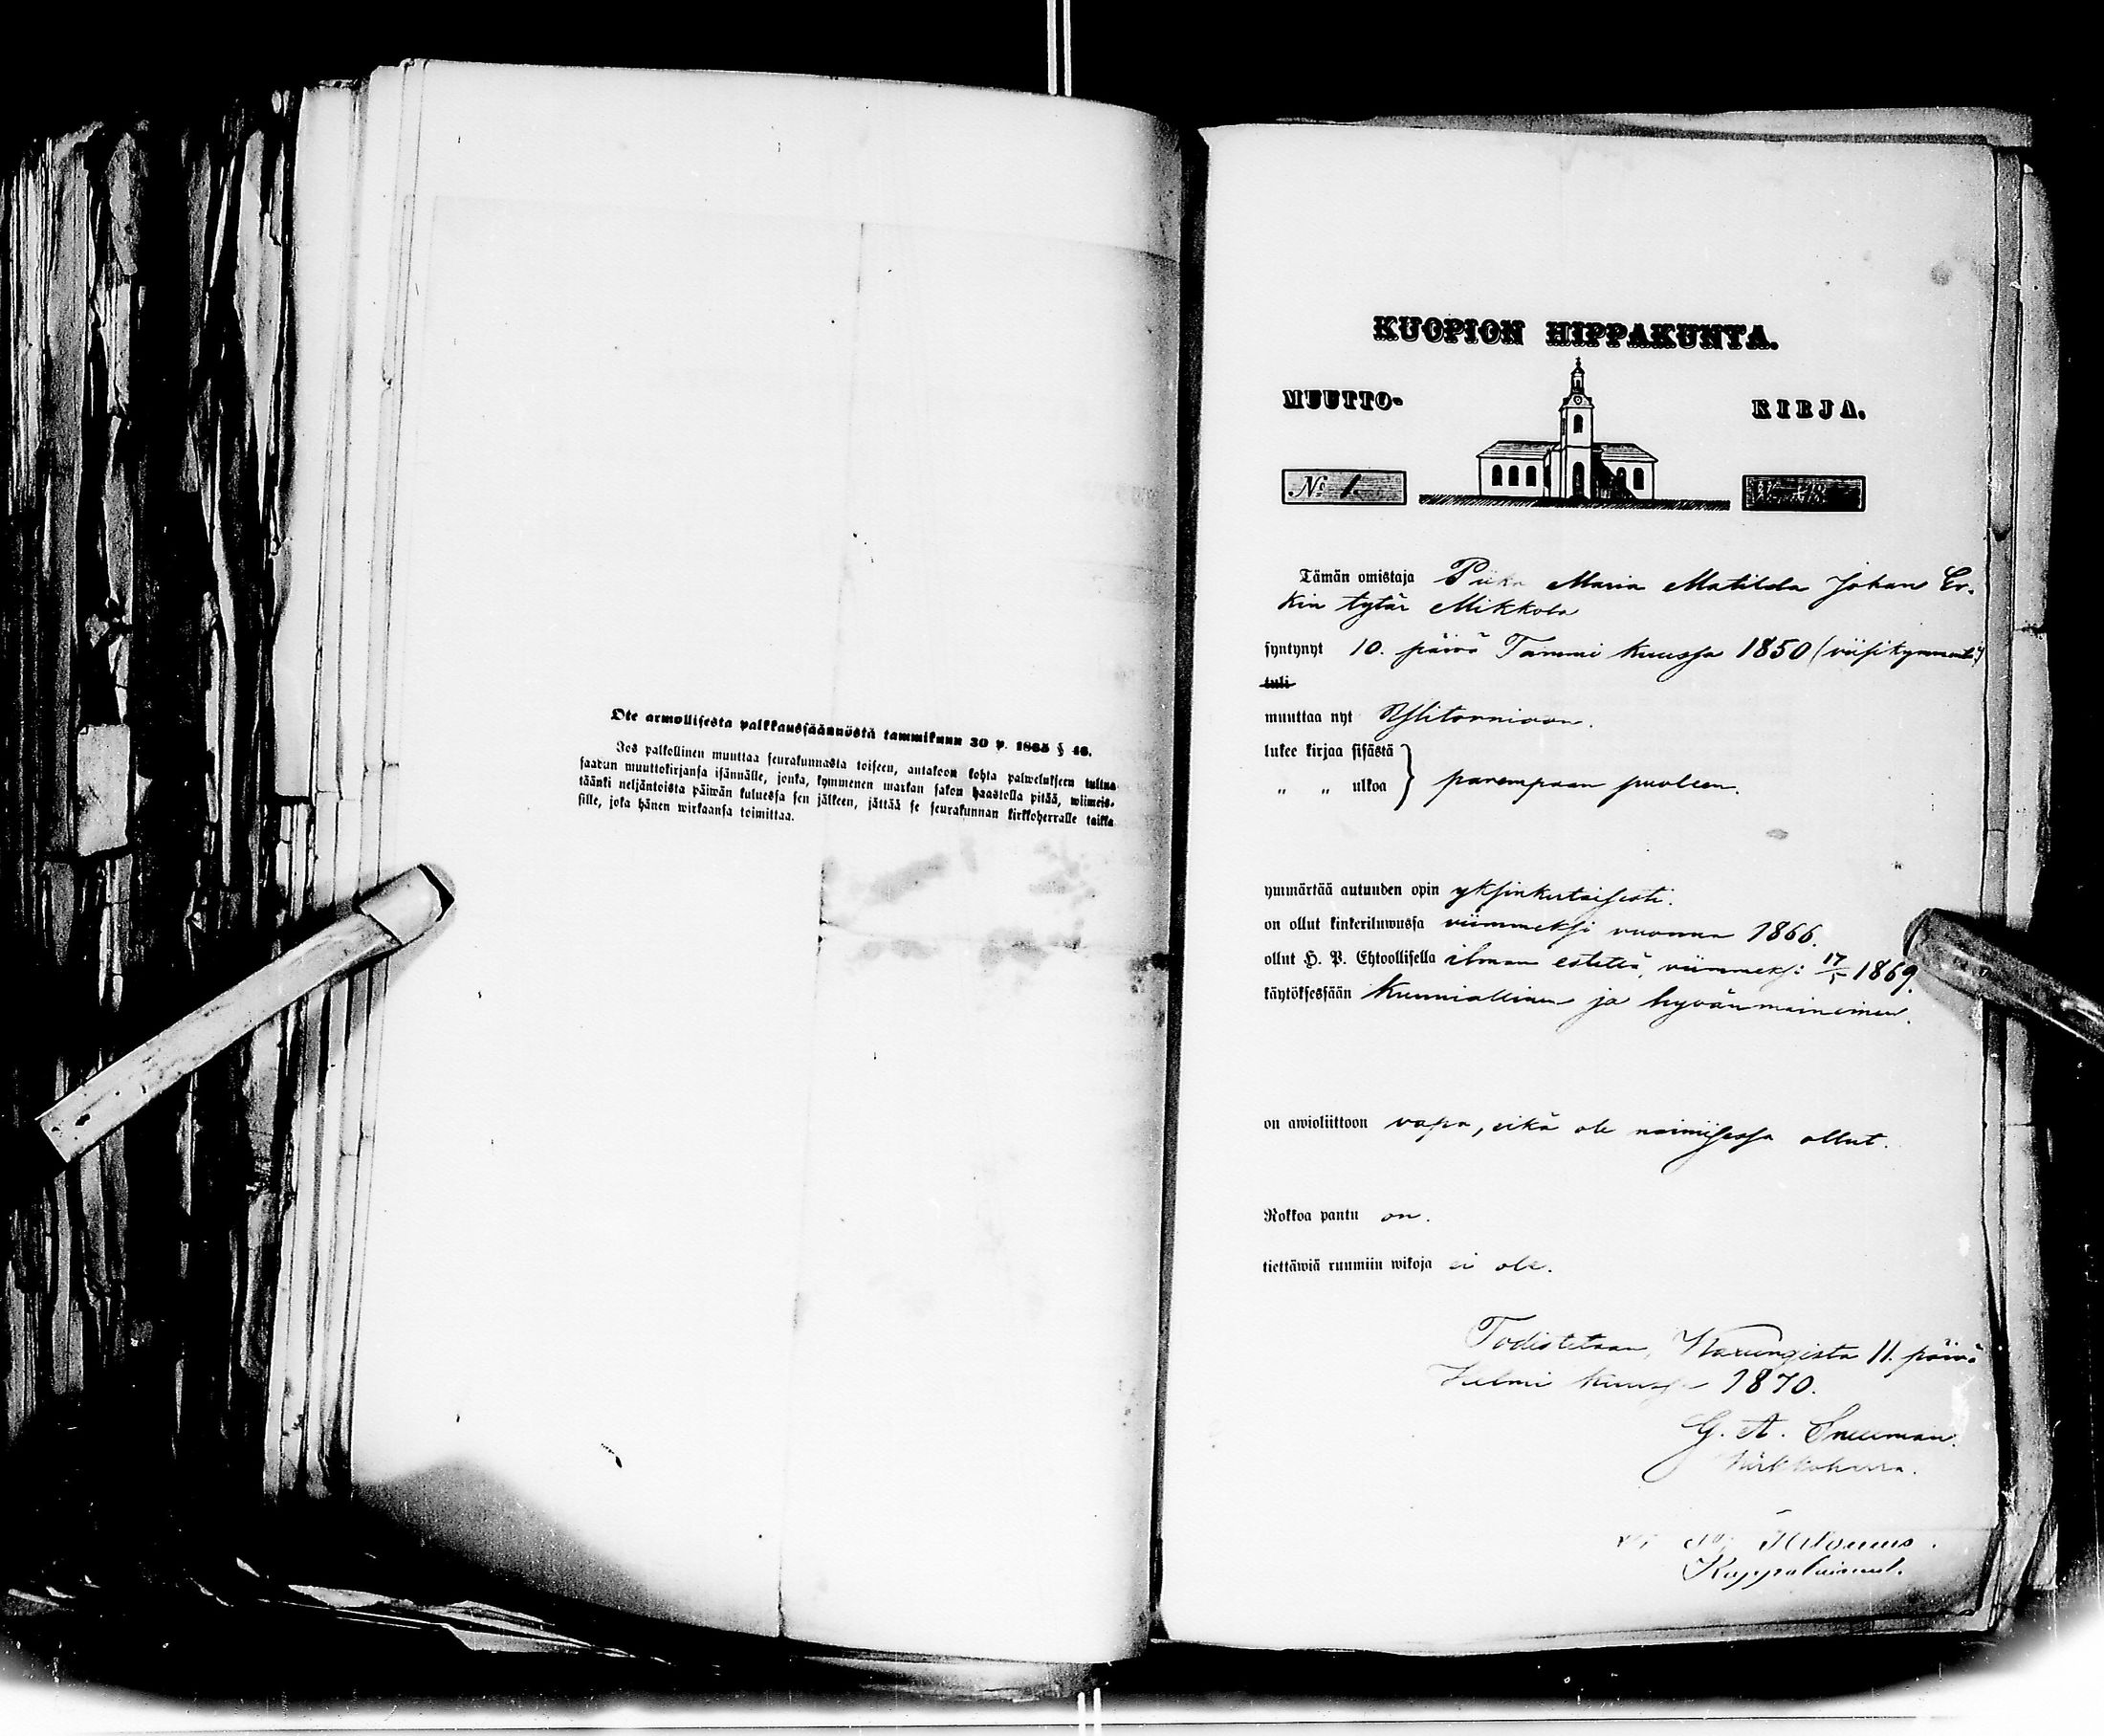 Ote armollisesta palkkaussäännöstä tammikuun 30 p. 1865 § 46.
Jos palkollinen muuttaa seurakunnasta toiseen, antakoon kohta palwelukseen tultua
saadun muuttokirjansa isännälle, jonka, kymmenen markan sakon haastolla pitää, wiimeis-
täänki neljäntoista päiwän kuluessa sen jälkeen, jättää se seurakunnan kirkkoherralle taikka
sille, joka hänen wirkaansa toimittaa.
KUOPION HIPPAKUNTA.
MUUTTO- KIRJA.
No 1.
Tämän omistaja Piika Maria Matilda Johan Er-
kin tytär Mikkola
syntynyt 10. päivä Tammi kuussa 1850 (viisikymmentä)
tuli
muuttaa nyt Ylitornioon.
lukee kirjaa sisästä
„ „ ulkoa } parempaan puoleen.
ymmärtää autuuden opin yksinkertaisesti.
on ollut kinkeriluwussa viimmeksi vuonna 1866.
ollut H. P. Ehtoollisella ilman estettä, viimmeksi 17/5 1869.
käytöksessään kunniallinen ja hyvänmaineinen.
on awioliittoon vapa, eikä ole naimisessa ollut.
Rokkoa pantu on.
tiettäwiä ruumiin wikoja ei ole.
Todistetaan, Karungista 11. päivä
Helmi kuussa 1870.
G. A. Snellman.
Kirkkoherra.
Kappalainen.